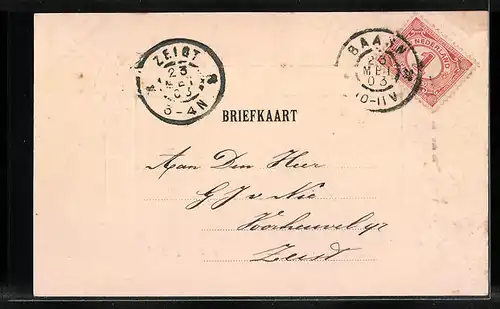 ZEIST
23
MEI
03
3-4N
BAARN
23
MEI
03
10-11V
NEDERLAND
1
BRIEFKAART
Aan Den Heer
G J v Nie
Zeist